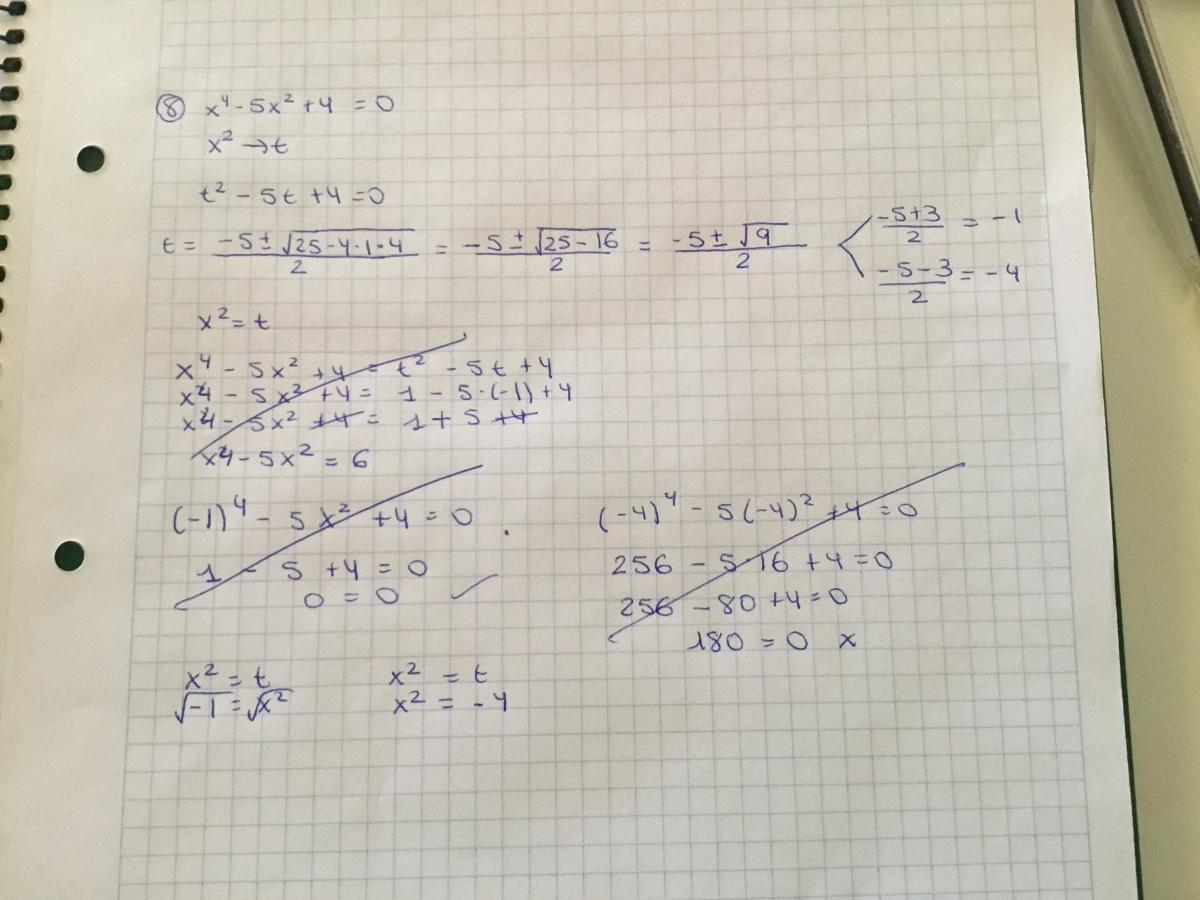 ⑧ x⁴ - 5x² + 4 = 0
x² → t
t² - 5t + 4 = 0
t = (-5 ± √(25 - 4·1·4))/2 = (-5 ± √(25 - 16))/2 = (-5 ± √9)/2 < (-5+3)/2 = -1
(-5-3)/2 = -4
x² = t
x⁴ - 5x² + 4 = t² - 5t + 4
x⁴ - 5x² + 4 = 1 - 5·(-1) + 4
x⁴ - 5x² + 4 = 1 + 5 + 4
x⁴ - 5x² = 6
(-1)⁴ - 5x² + 4 = 0
1 - 5 + 4 = 0
0 = 0 ✓
(-4)⁴ - 5(-4)² + 4 = 0
256 - 5·16 + 4 = 0
256 - 80 + 4 = 0
180 = 0 x
x² = t
√-1 = √x²
x² = t
x² = -4